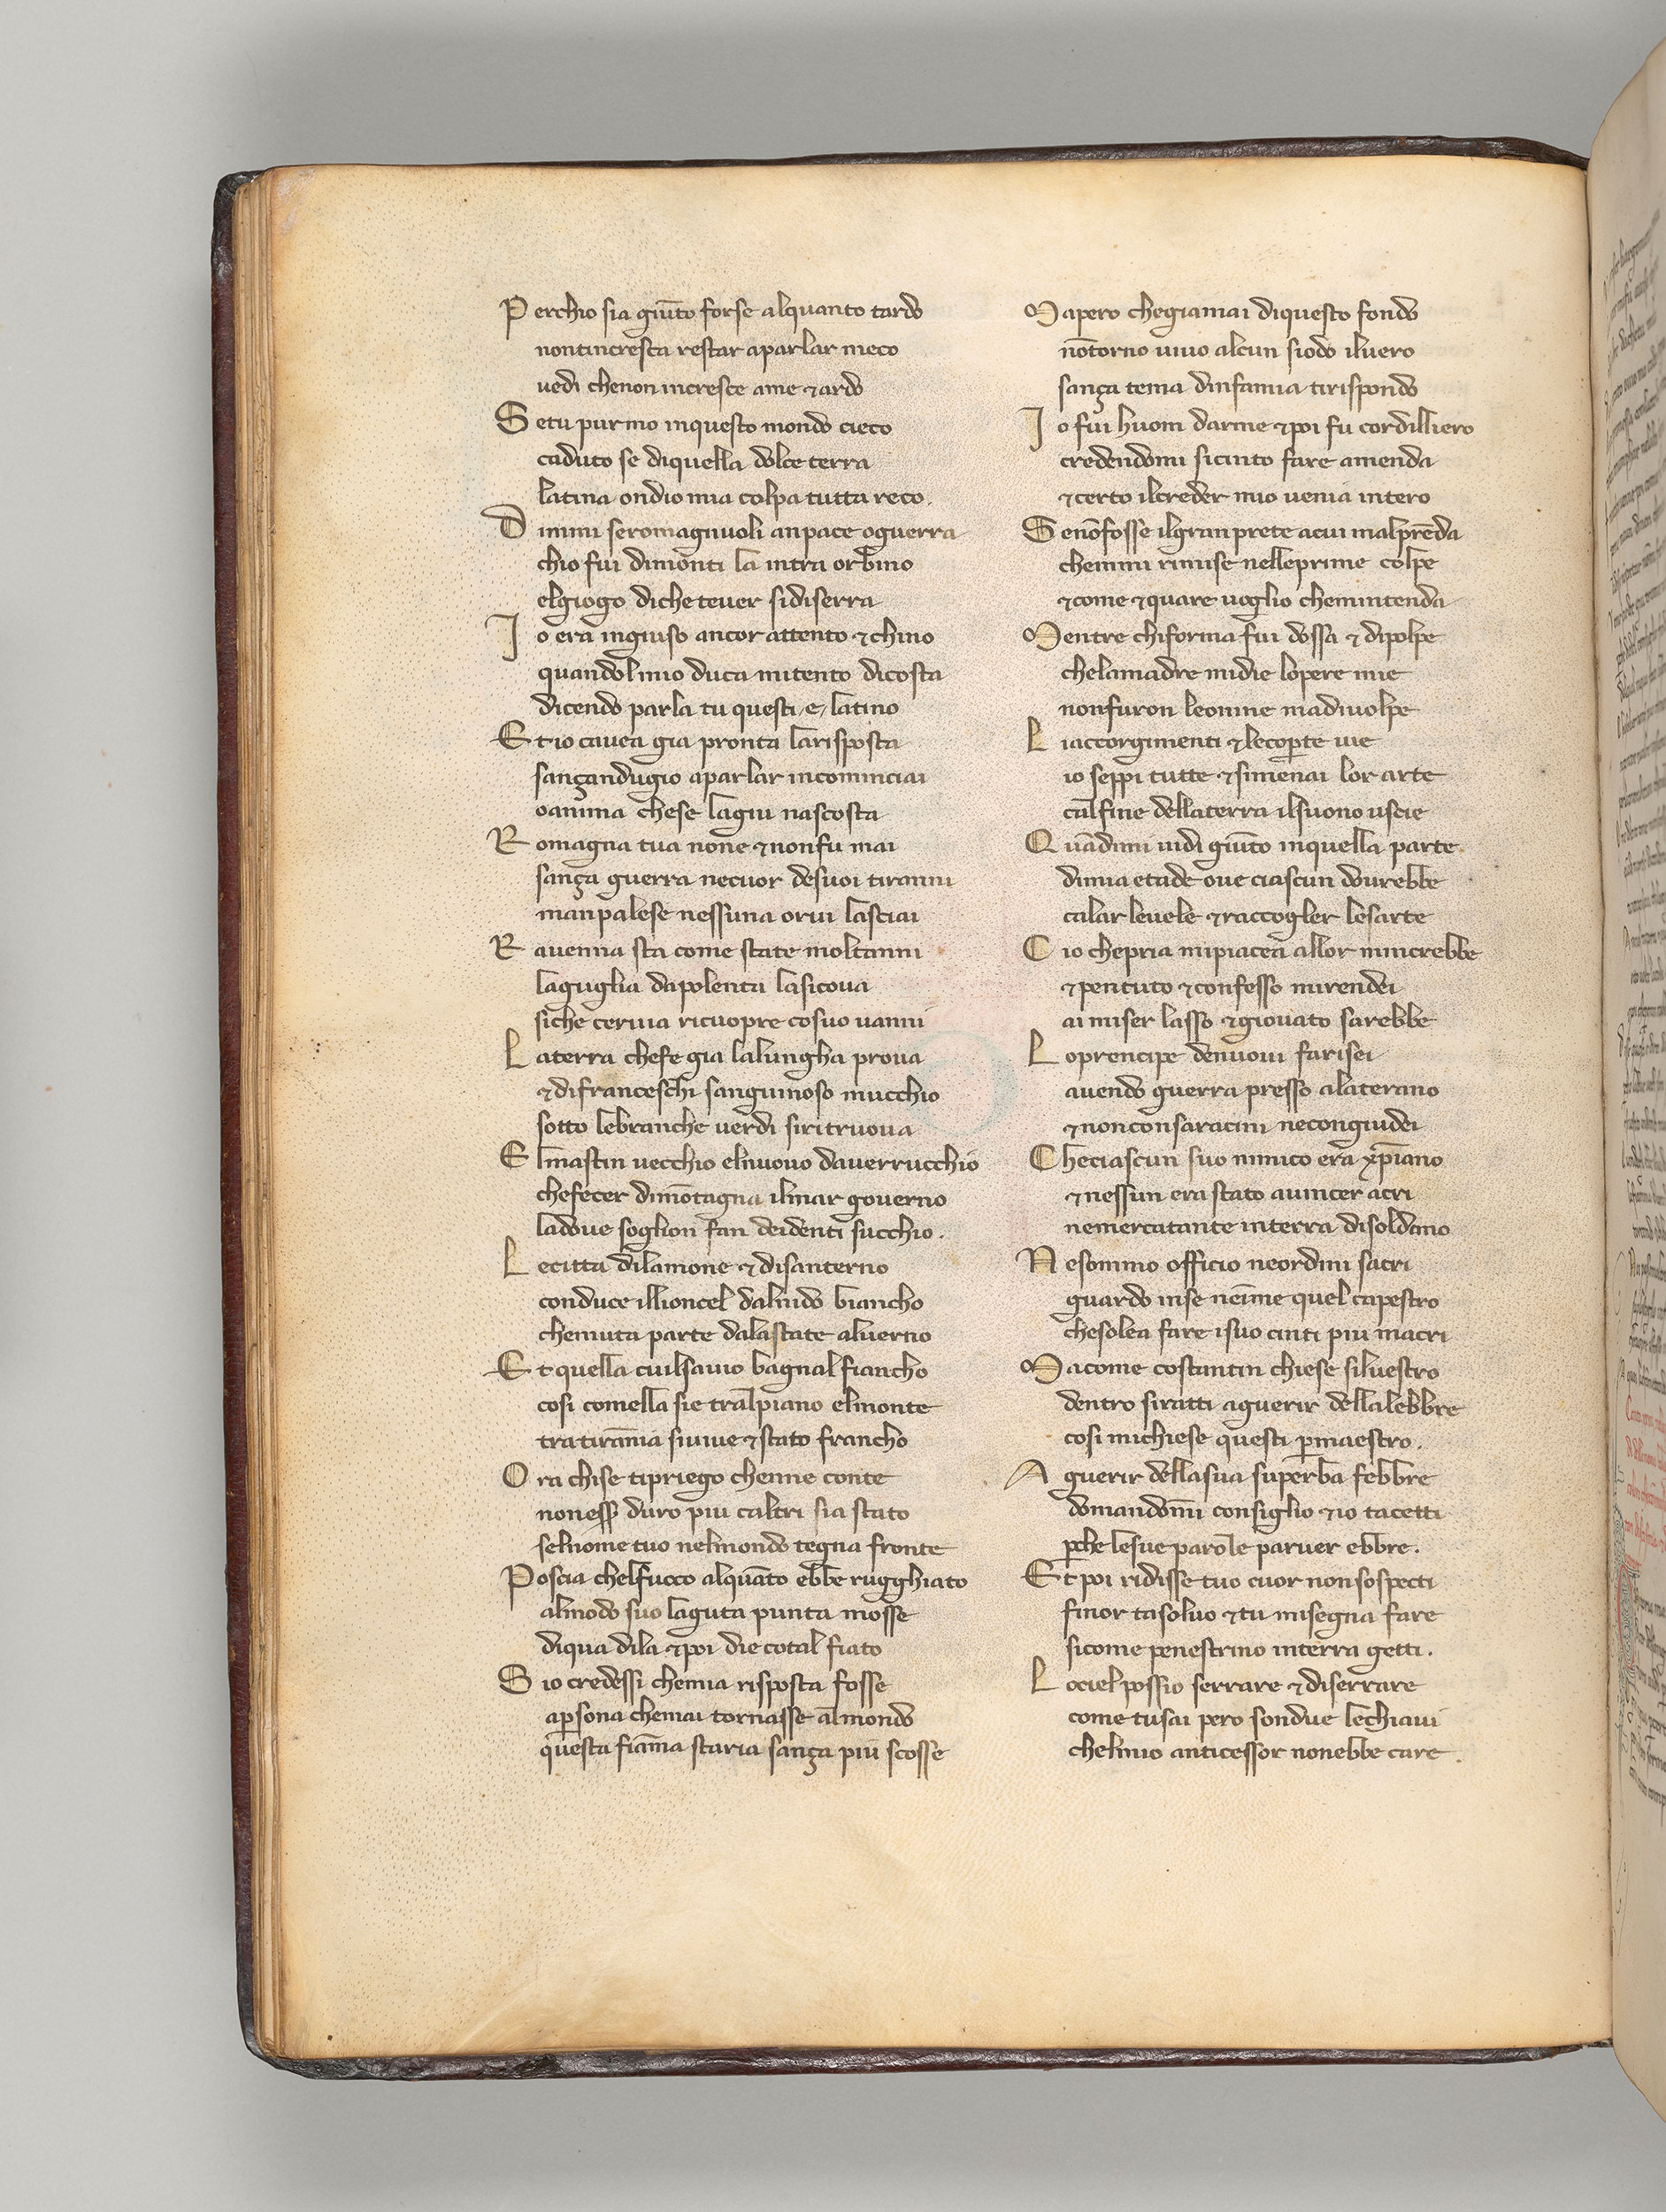 Perchio sia giūto forse alquanto tardo
nontincresca restar aparlar meco
uedi chenon incresce ame ⁊ardo
Setu purmo inquesto mondo cieco
caduto se diquella dolce terra
latina ondio mia colpa tutta reco.
Dimmi seromagnuoli anpace oguerra
chio fui dimonti la intra orbino
elgiogo diche teuer sidiserra
Io era ingiuso ancor attento ⁊ chino
quandol mio duca mitento dicosta
dicendo parla tu questi /e/ latino
Et io cauea gia pronta larisposta
sançandugio aparlar incominciai
oanima chese lagiu nascosta
Romagna tua none ⁊nonfu mai
sança guerra necuor desuoi tiranni
manpalese nessuna orui lasciai
Rauenna sta come state moltanni
laguglia dapolenta lasicoua
siche ceruia ricuopre cosuo uanni
Laterra chefe gia lalungha proua
⁊difranceschi sanguinoso mucchio
sotto lebranche uerdi siritruoua
Elmastin uecchio elnuouo dauerrucchio
chefecer dimōtagna ilmar gouerno
ladoue soglion fan deidenti succhio.
Lecitta dilamone ⁊disanterno
conduce illioncel dalnido biancho
chemuta parte dalastate aluerno
Et quella cuilsauio bagnal fiancho
cosi comella sie tralpiano elmonte
tratirānia siuiue ⁊stato francho
Ora chise tipriego chenne conte
nonesser duro piu caltri sia stato
selnome tuo nelmondo tegna fronte
Poscia chelfuoco alquāto ebbe rugghiato
almodo suo laguta punta mosse
diqua dila ⁊poi die cotal fiato
Sio credessi chemia risposta fosse
aꝑsona chemai tornasse almondo
questa fiāma staria sança piu scosse
Mapero chegiamai diquesto fondo
nōtorno uiuo alcun siodo iluero
sança tema dinfamia tirispondo
Io fui huom darme ⁊poi fu cordilliero
credendomi sicinto fare amenda
⁊certo ilcreder mio uenia intero
Senōfosse ilgran prete acui malprēda
chemmi rimise nelleprime colpe
⁊come ⁊quare uoglio chemintenda
Mentre chiforma fui dossa ⁊ dipolpe
chelamadre midie lopere mie
nonfuron leonine madiuolpe
Liaccorgimenti ⁊lecoꝑte uie
io seppi tutte ⁊simenai lor arte
calfine dellaterra ilsuono uscie
Quādimi uidi giūto inquella parte
dimia etade oue ciascun dourebbe
calar leuele ⁊raccogler lesarte
Cio chepria mipiacea allor mincrebbe
⁊pentuto ⁊confesso mirendei
ai miser lasso ⁊giouato sarebbe
Loprencipe denuoui farisei
auendo guerra presso alaterano
⁊nonconsaracini necongiudei
Checiascun suo nimico era xp̄iano
⁊nessun era stato auincer acri
nemercatante interra disoldano
Nesommo officio neordini sacri
guardo inse neīme quel capestro
chesolea fare isuo cinti piu macri
Macome costantin chiese siluestro
dentro siratti aguerir dellalebbre
cosi michiese questi ꝑmaestro.
Aguerir dellasua superba febbre
domandōmi consiglio ⁊io tacetti
ꝑche lesue parole paruer ebbre.
Et poi ridisse tuo cuor nonsospecti
finor tasoluo ⁊tu misegna fare
sicome penestrino interra getti.
Lociel possio serrare ⁊diserrare
come tusai pero sondue lechiaui
chelmio anticessor nonebbe care.